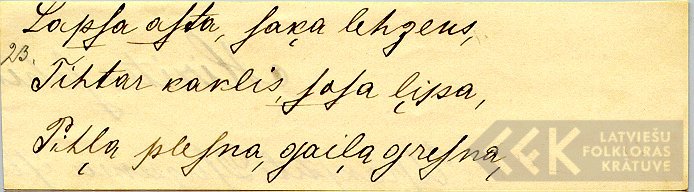 Lapsa asta, saķa lehzens,
23.
Tihtar kaklis, sosa ļipa,
Pihļa plesna, gaiļa gresna,
LATVIEŠU
FOLKLORAS
KRĀTUVE